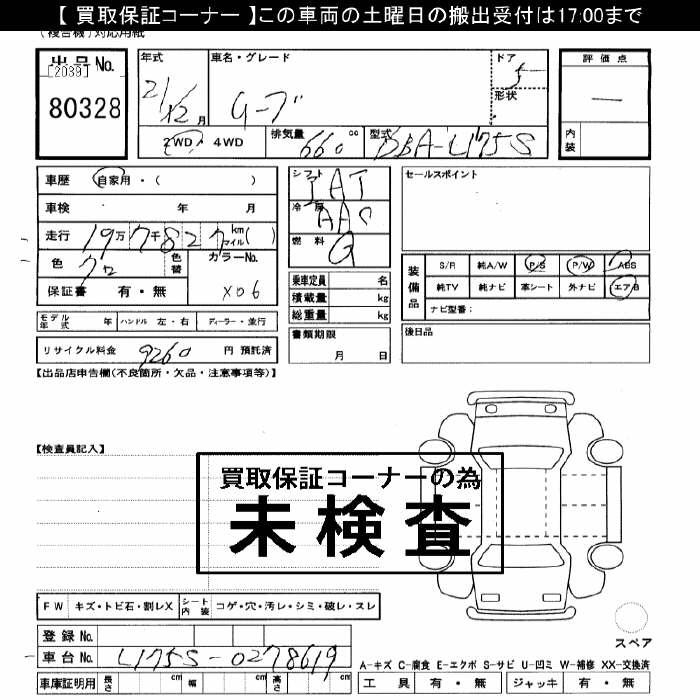 【 買取保証コーナー 】この車両の土曜日の搬出受付は17:00まで
(複合機)対応用紙
出品No. [2039] 80328
年式 21/12月
車名・グレード
ドア 5
形状
評価点 —
内装
2WD・4WD
排気量 660 cc
型式 DBA-L175S
車歴 自家用・( )
車検 年 月
走行 19万7千827 km マイル( )
色 クロ 色替
カラーNo. X06
保証書 有・無
シフト IAT
冷房 AAC
燃料 G
乗車定員 名
積載量 kg
総重量 kg
書類期限 月 日
セールスポイント
装備品 S/R 純A/W P/S P/W ABS
純TV 純ナビ 革シート 外ナビ エアB
ナビ型番:
後日品
モデル年式 年 ハンドル 左・右 ディーラー・並行
リサイクル料金 9260 円 預託済
【出品店申告欄(不良箇所・欠品・注意事項等)】
【検査員記入】
買取保証コーナーの為
未検査
FW キズ・トビ石・割レX シート内装 コゲ・穴・汚レ・シミ・破レ・スレ
スペア
登録No.
車台No. L175S-0278619
車庫証明用 長さ cm 幅 cm 高さ cm
A-キズ C-腐食 E-エクボ S-サビ U-凹ミ W-補修 XX-交換済
工具 有・無 ジャッキ 有・無